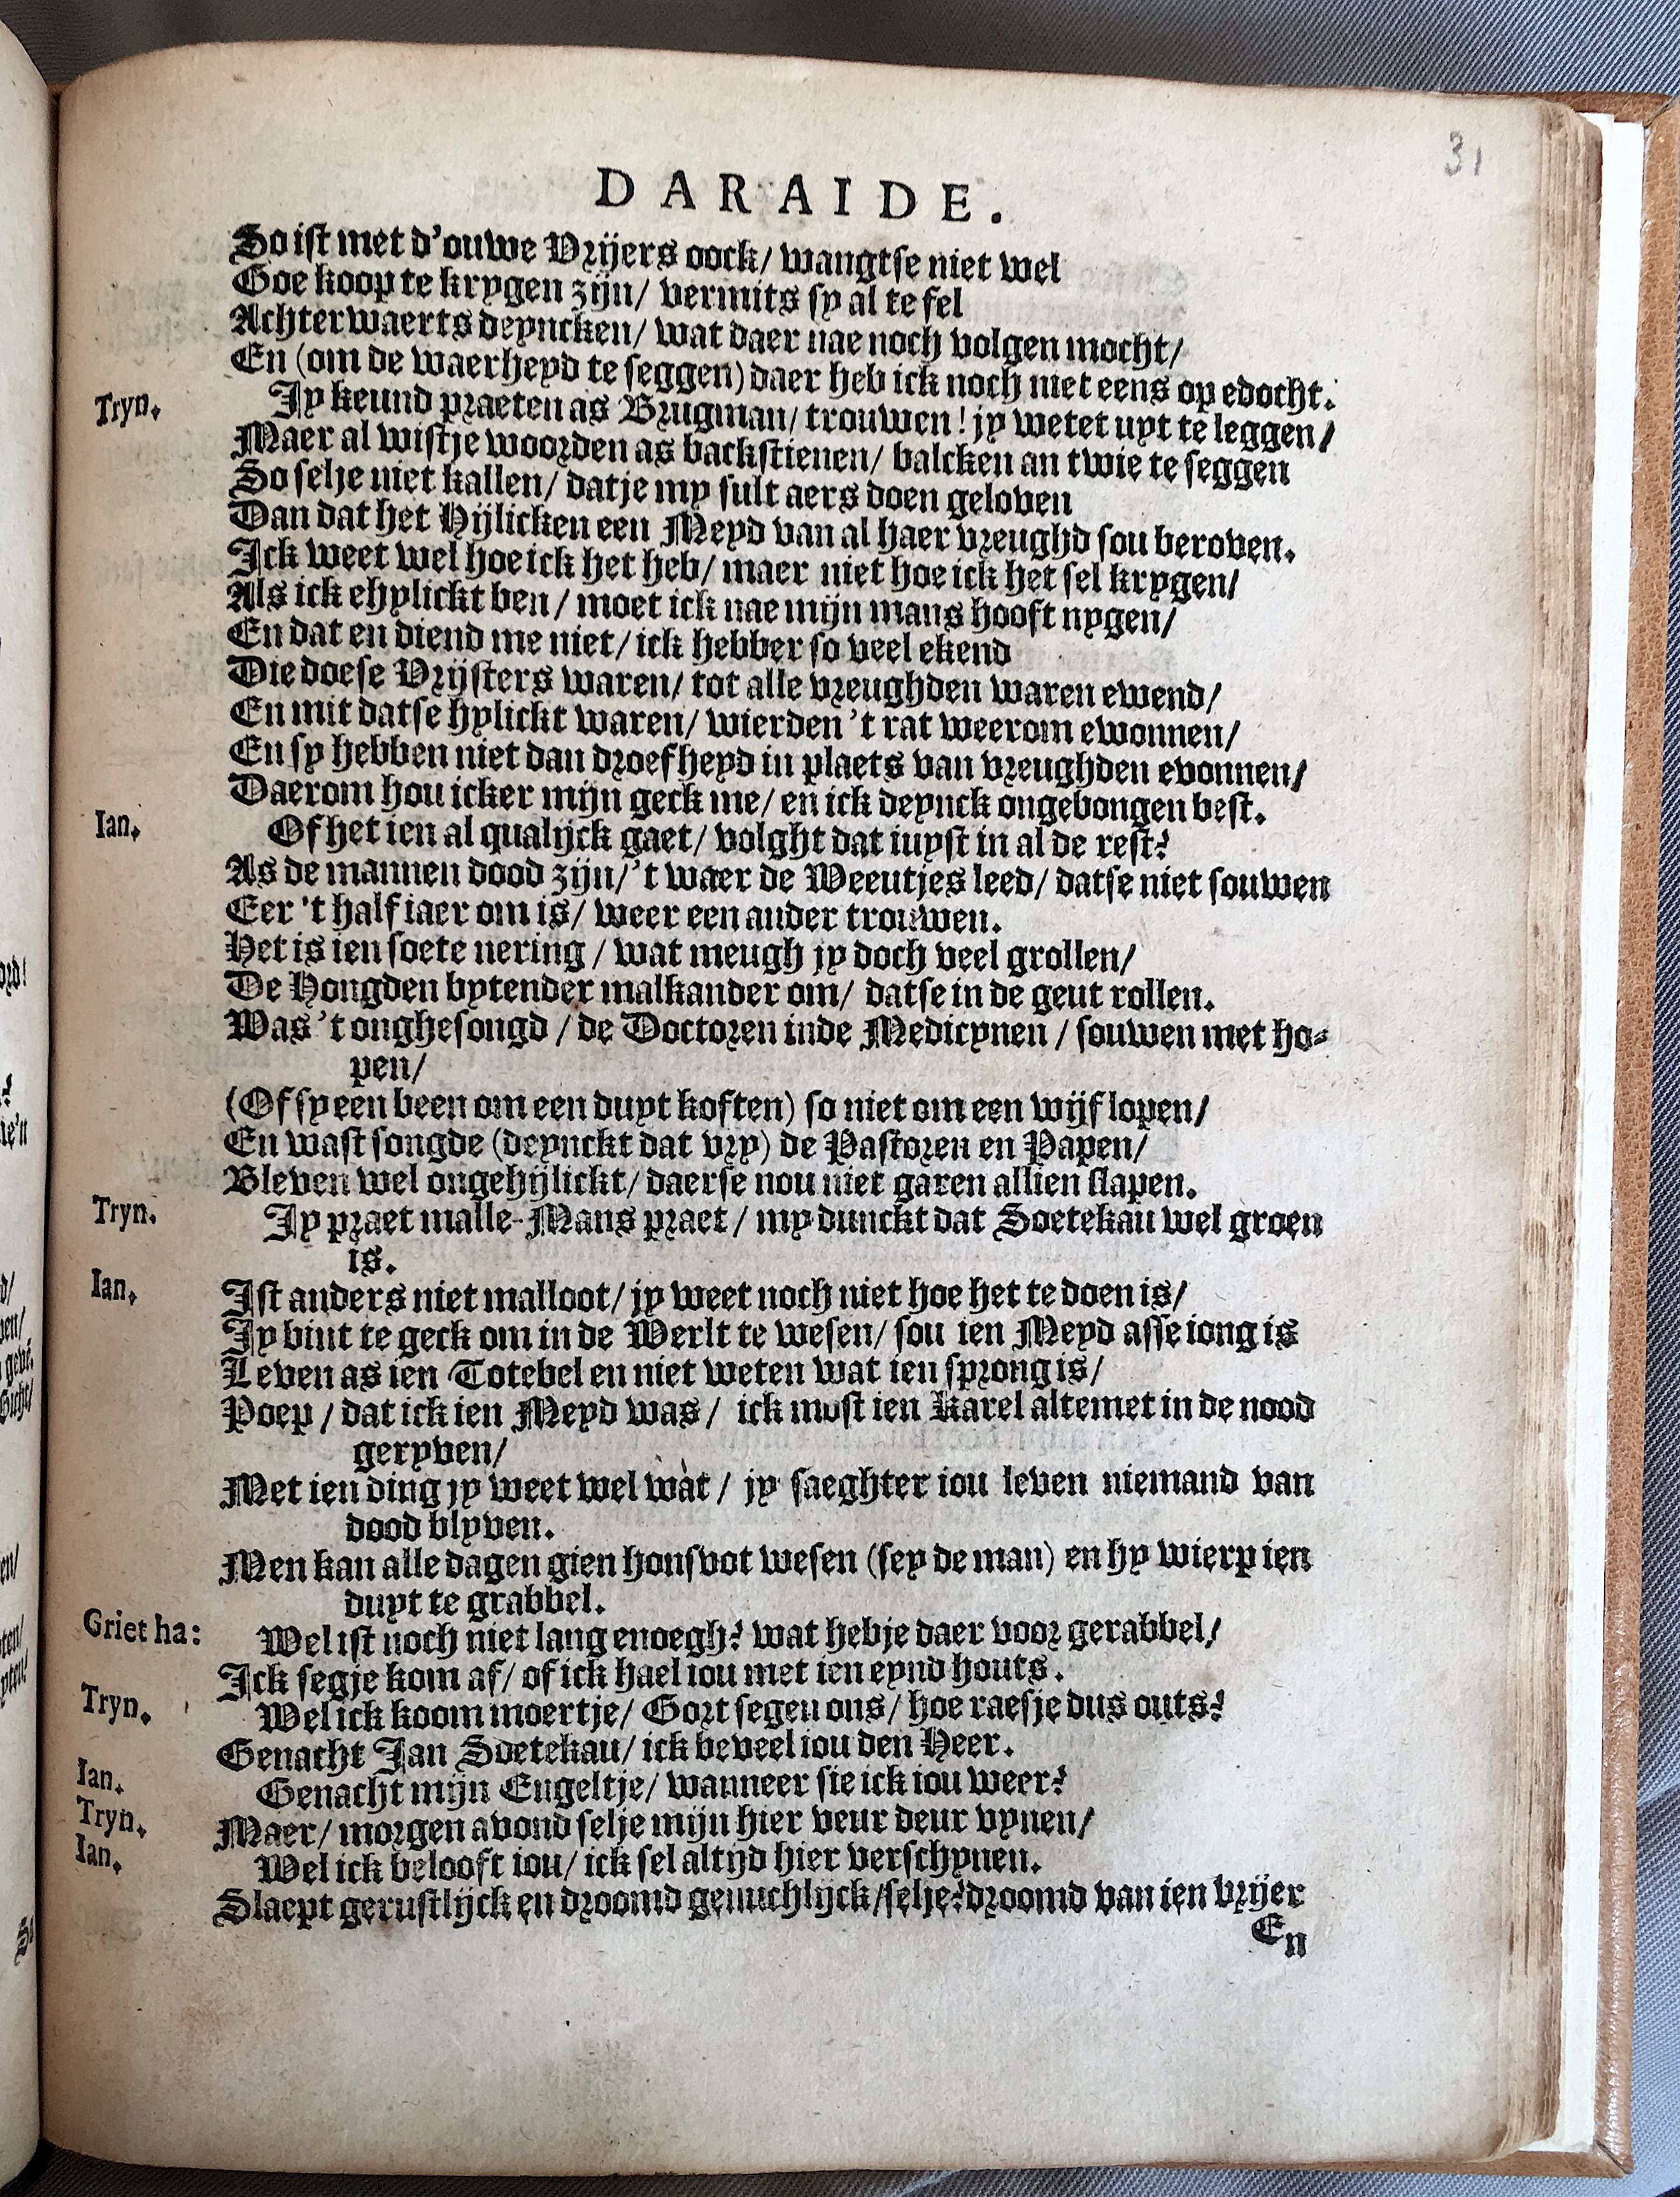 31
DARAIDE.
So ist met d'ouwe Vrijers oock/ wangtse niet wel
Goe koop te krygen zijn/ vermits sy al te fel
Achterwaerts deyncken/ wat daer nae noch volgen mocht/
En (om de waerheyd te seggen) daer heb ick noch niet eens op edocht.
Tryn. Jy keund praeten as Brugman/ trouwen! jy wetet uyt te leggen/
Maer al wistje woorden as backstienen/ balcken an twie te seggen
So selje niet kallen/ datje my sult aers doen geloven
Dan dat het Hijlicken een Meyd van al haer vreughd sou beroven.
Ick weet wel hoe ick het heb/ maer niet hoe ick het sel krygen/
Als ick ehylickt ben/ moet ick nae mijn mans hooft nygen/
En dat en diend me niet/ ick hebber so veel ekend
Die doese Vrijsters waren/ tot alle vreughden waren ewend/
En mit datse hylickt waren/ wierden 't rat weerom ewonnen/
En sy hebben niet dan droefheyd in plaets van vreughden evonnen/
Daerom hou icker mijn geck me/ en ick deynck ongebongen best.
Ian. Of het ien al qualijck gaet/ volght dat iuyst in al de rest?
As de mannen dood zijn/ 't waer de Weeutjes leed/ datse niet souwen
Eer 't half iaer om is/ weer een ander trouwen.
Het is ien soete nering/ wat meugh jy doch veel grollen/
De Hongden bytender malkander om/ datse in de geut rollen.
Was 't onghesongd/ de Doctoren inde Medicynen/ souwen met ho-
pen/
(Of sy een been om een duyt koften) so niet om een wijf lopen/
En wast songde (deynckt dat vry) de Pastoren en Papen/
Bleven wel ongehijlickt/ daerse nou niet garen allien slapen.
Tryn. Jy praet malle-Mans praet/ my dunckt dat Soetekau wel groen
is.
Ian. Ist anders niet malloot/ jy weet noch niet hoe het te doen is/
Jy bint te geck om in de Werlt te wesen/ sou ien Meyd asse iong is
Leven as ien Totebel en niet weten wat ien sprong is/
Poep/ dat ick ien Meyd was/ ick must ien Karel altemet in de nood
geryven/
Met ien ding jy weet wel wat/ jy saeghter iou leven niemand van
dood blyven.
Men kan alle dagen gien honsvot wesen (sey de man) en hy wierp ien
duyt te grabbel.
Griet ha: Wel ist noch niet lang enoegh? wat hebje daer voor gerabbel/
Ick segje kom af/ of ick hael iou met ien eynd houts.
Tryn. Wel ick koom moertje/ Gort segen ons/ hoe raesje dus outs?
Genacht Jan Soetekau/ ick beveel iou den Heer.
Ian. Genacht mijn Engeltje/ wanneer sie ick iou weer?
Tryn. Maer/ morgen avond selje mijn hier veur deur vynen/
Ian. Wel ick belooft iou/ ick sel altijd hier verschynen.
Slaept gerustlijck en droomd genuchlijck/ selje? droomd van ien vrijer
En